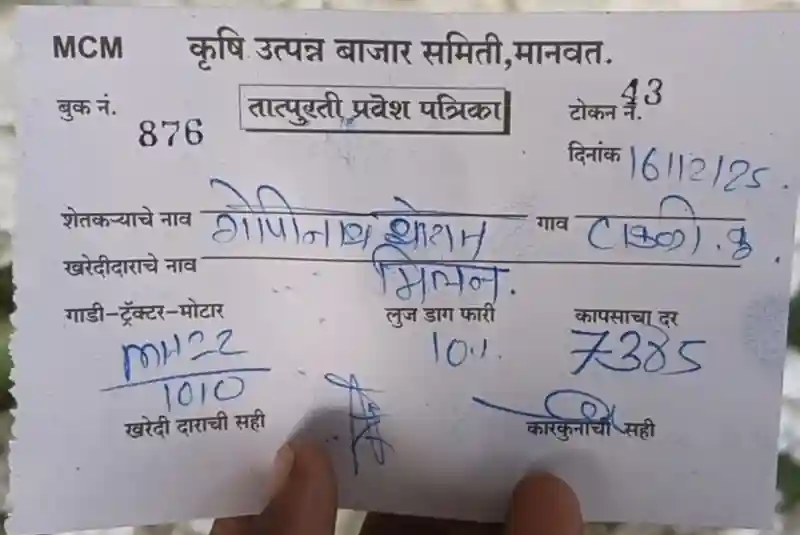 MCM कृषि उत्पन्न बाजार समिती,मानवत.
बुक नं. 876 तात्पुरती प्रवेश पत्रिका टोकन नं. 43
दिनांक 16/12/25
शेतकऱ्याचे नाव गोपीनाथ थोरात गाव टाकळी. कु.
खरेदीदाराचे नाव मिलन.
गाडी-ट्रॅक्टर-मोटार लुज डाग फारी कापसाचा दर
MH22 7385
1010
खरेदी दाराची सही कारकुनाची सही